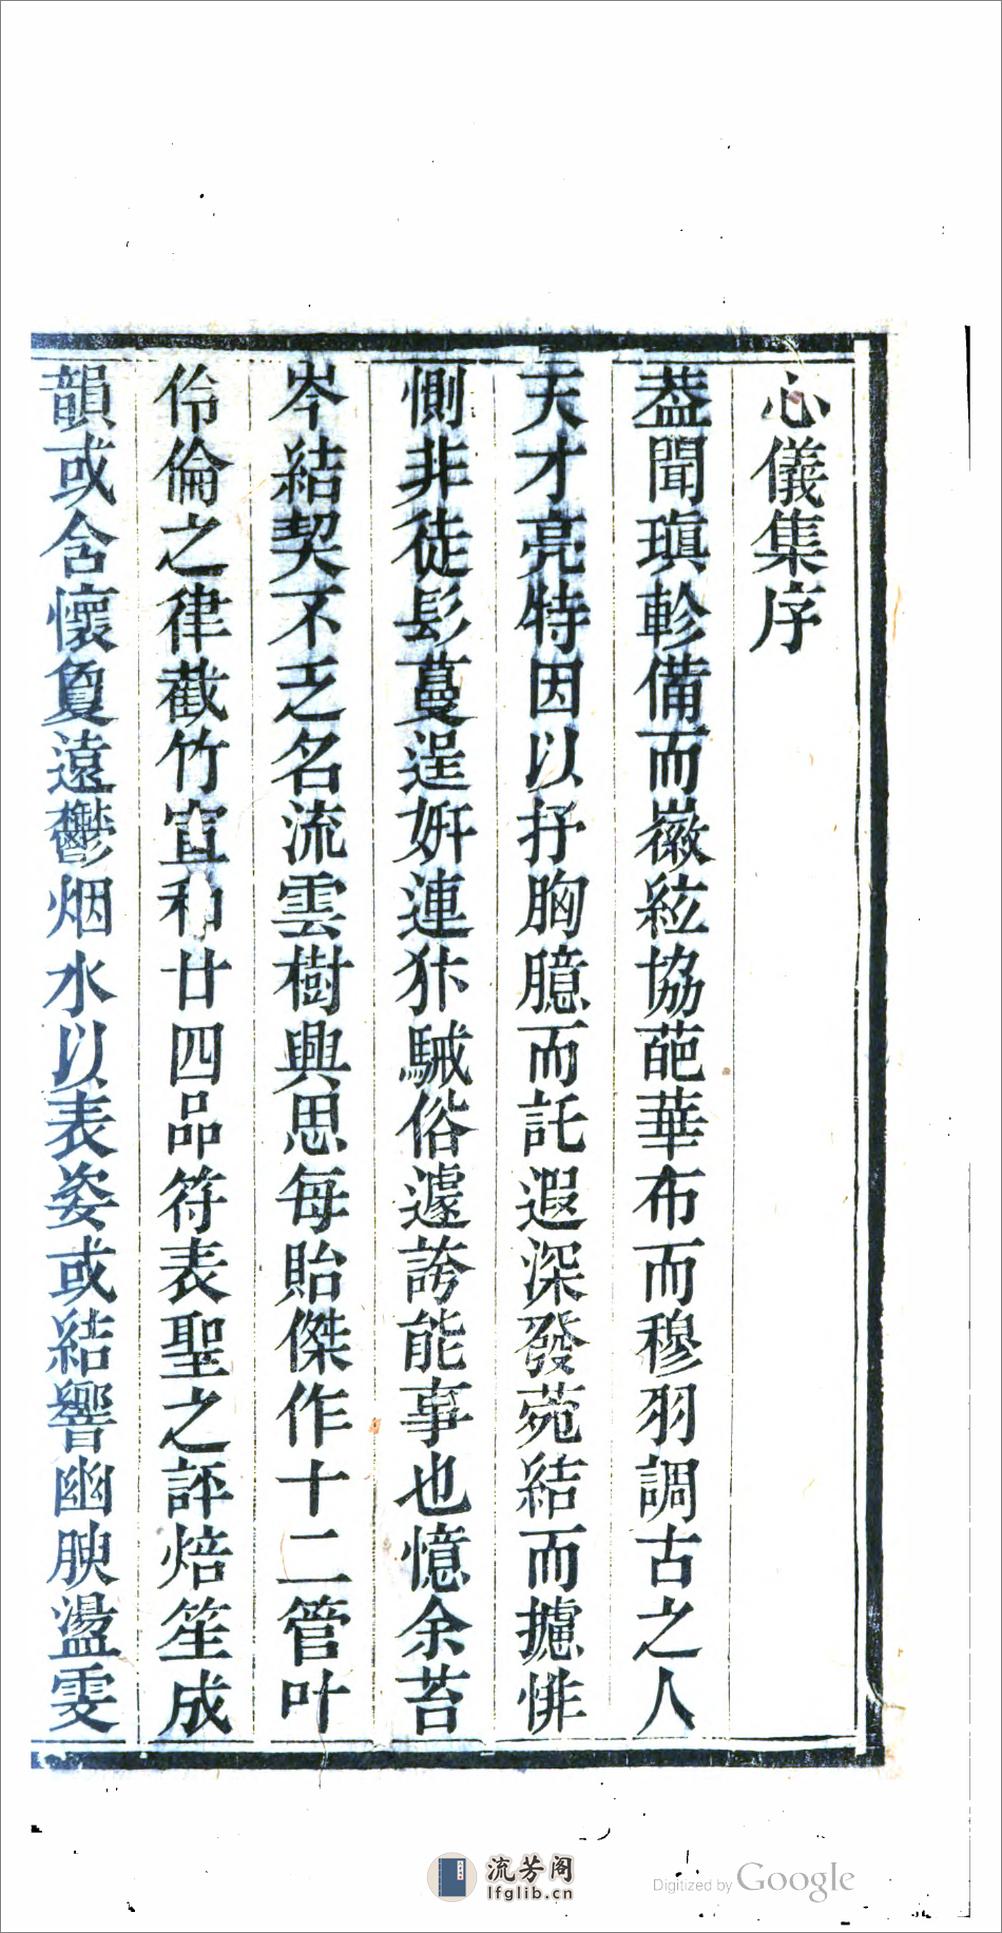 心儀集序
葢聞瑱軫備而徽絃協葩華布而穆羽調古之人
天才亮特因以抒胸臆而託遐深發菀結而攄悱
惻非徒髟蔓逞姸連犿駴俗遽誇能事也憶余苔
岑結契不乏名流雲樹興思每貽傑作十二管叶
伶倫之律截竹宜和廿四品符表聖之評焙笙成
韻或含懷敻遠鬱烟水以表姿或結響幽腴盪雯
流芳阁
lfglib.cn
Digitized by Google